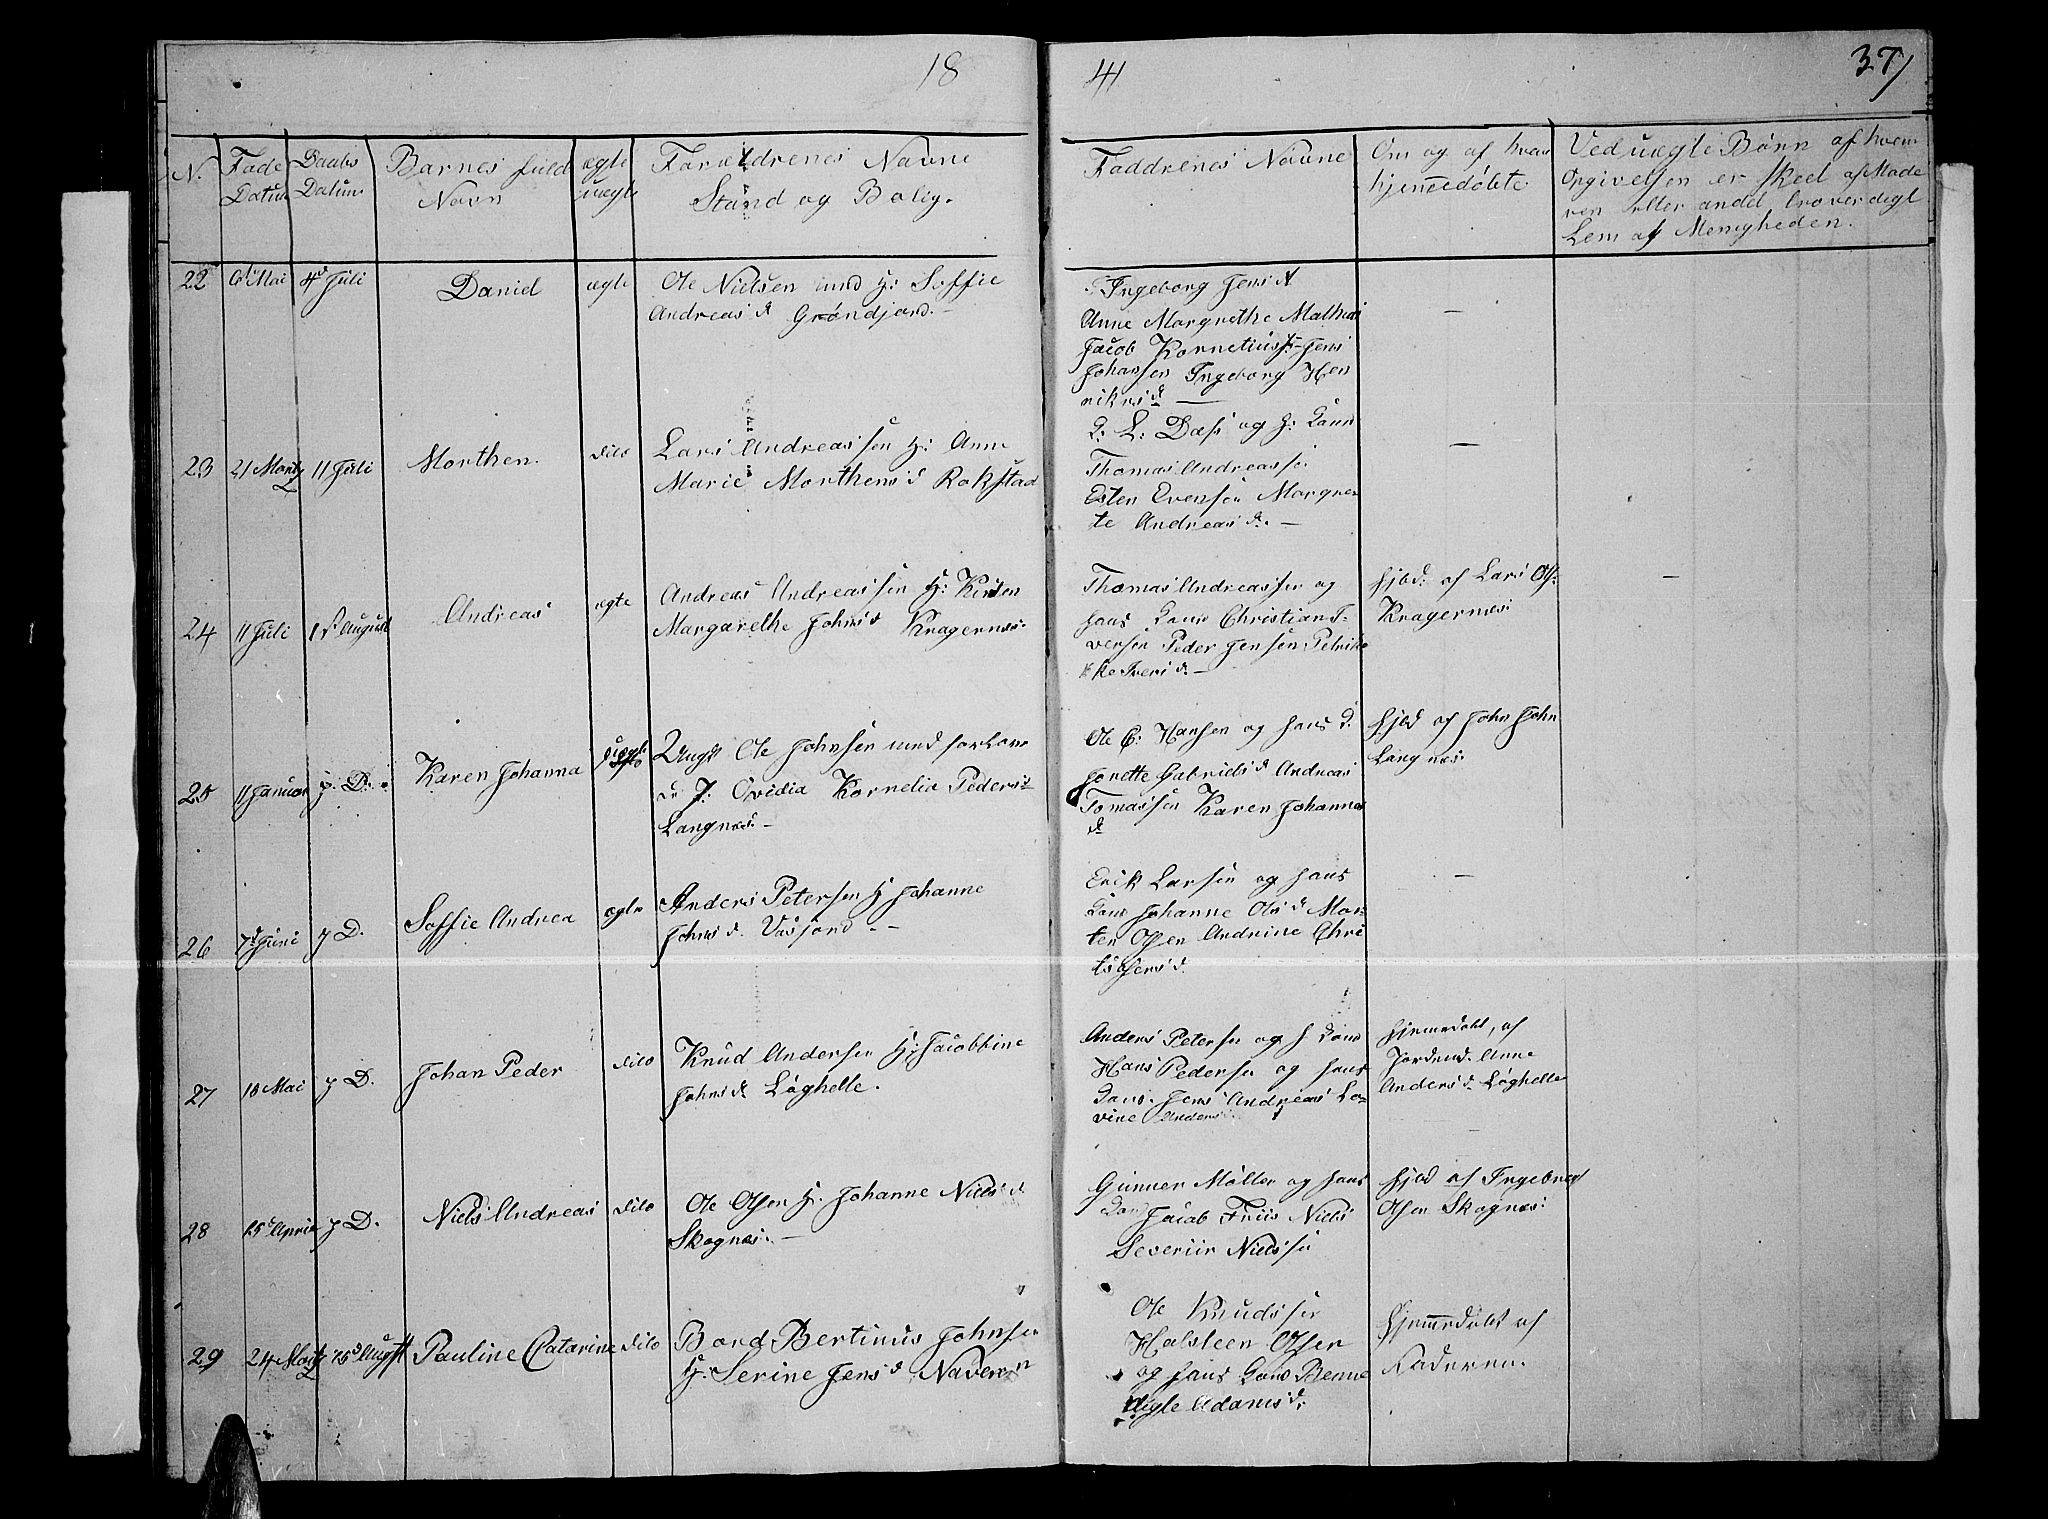 18 41 37
N. Føde Datum
Daabs Datum
Barnes fuld Navn
ægte uægte
Forældrenes Navne
Stand og Bolig.
Faddrenes Navne
Om og af hvem
hjemmedøbte
Ved uægte Børn af hvem
Opgivelsen er skeet af Mode
ren eller andet troverdigt
Lem af Menigheden.
22 6te Mai 4d Juli Daniel ægte
Ole Nielsen und H: Soffie
Andreasd Grøndjord. -
Ingeborg Jensd
Anne Margrethe Mathias
Jacob Kornelius Jens
Johansen Ingeborg Hen
riksd
-
23 21 Martz 11 Juli Morthen. dito
Lars Andreassen H: Anne
Marie Morthensd Rokstad
L: Dass og H: Kone
Thomas Andreassen
Esten Evensen Margre
te Andreasd. -
-
24 11 Juli 1st August Andreas ægte
Andreas Andreassen H: Kirsten
Margarethe Johnsd Kragernæs.
Thomas Andreassen og
hans Kone Christian I-
versen Peder Jensen Petrik
ke Iversd. -
hjød: af Lars Ols:
Kragernæs:
-
25 11 Januar p. D. Karen Johanna uægte
Ungk Ole Johnsen med forlove
de P: Ovidia Kornelia Pedersd
Langnæs. -
Ole C: Hansen og hans K.
Jonette Gabrielsd Andreas
Tomassen Karen Johannes
d
hjød af John John
Langnæs.
26 7d Juni p D. Soffie Andrea ægte
Anders Petersen H Johanne
Johnsd. Vasjord. -
Erik Larsen og hans
Kone Johanne Olsd Mor-
ten Olsen Andrine Chri
stofersd.
-
27 18 Mai p D. Johan Peder dito
Knud Andersen H: Jacobbine
Johnsd. Løghelle.
Anders Petersen og h Kone
Hans Pedersen og hans
Kone. Jens Andreas Lo-
vine Anders
Hjemedøbt, af
Jordmd. Anne
Andersd Løghelle
28 25d April p D. Niels Andreas dito
Ole Olsen H. Johanne Nielsd
Skognæs. -
Gunner Møller og hans
Kone Jacob Friis Niels
Severiin Nielsen
hjød af Ingebrigt
Olsen Skognæs:
29 24 Martz 15d August Pauline Catarine dito
Bord Bertinus Johnsen
H. Serine Jensd Naveren
Ole Knudssen
Halsteen Olsen
og hans Kone Benne
digte Adamsd.
Hjemmedøbt af
Faderen.